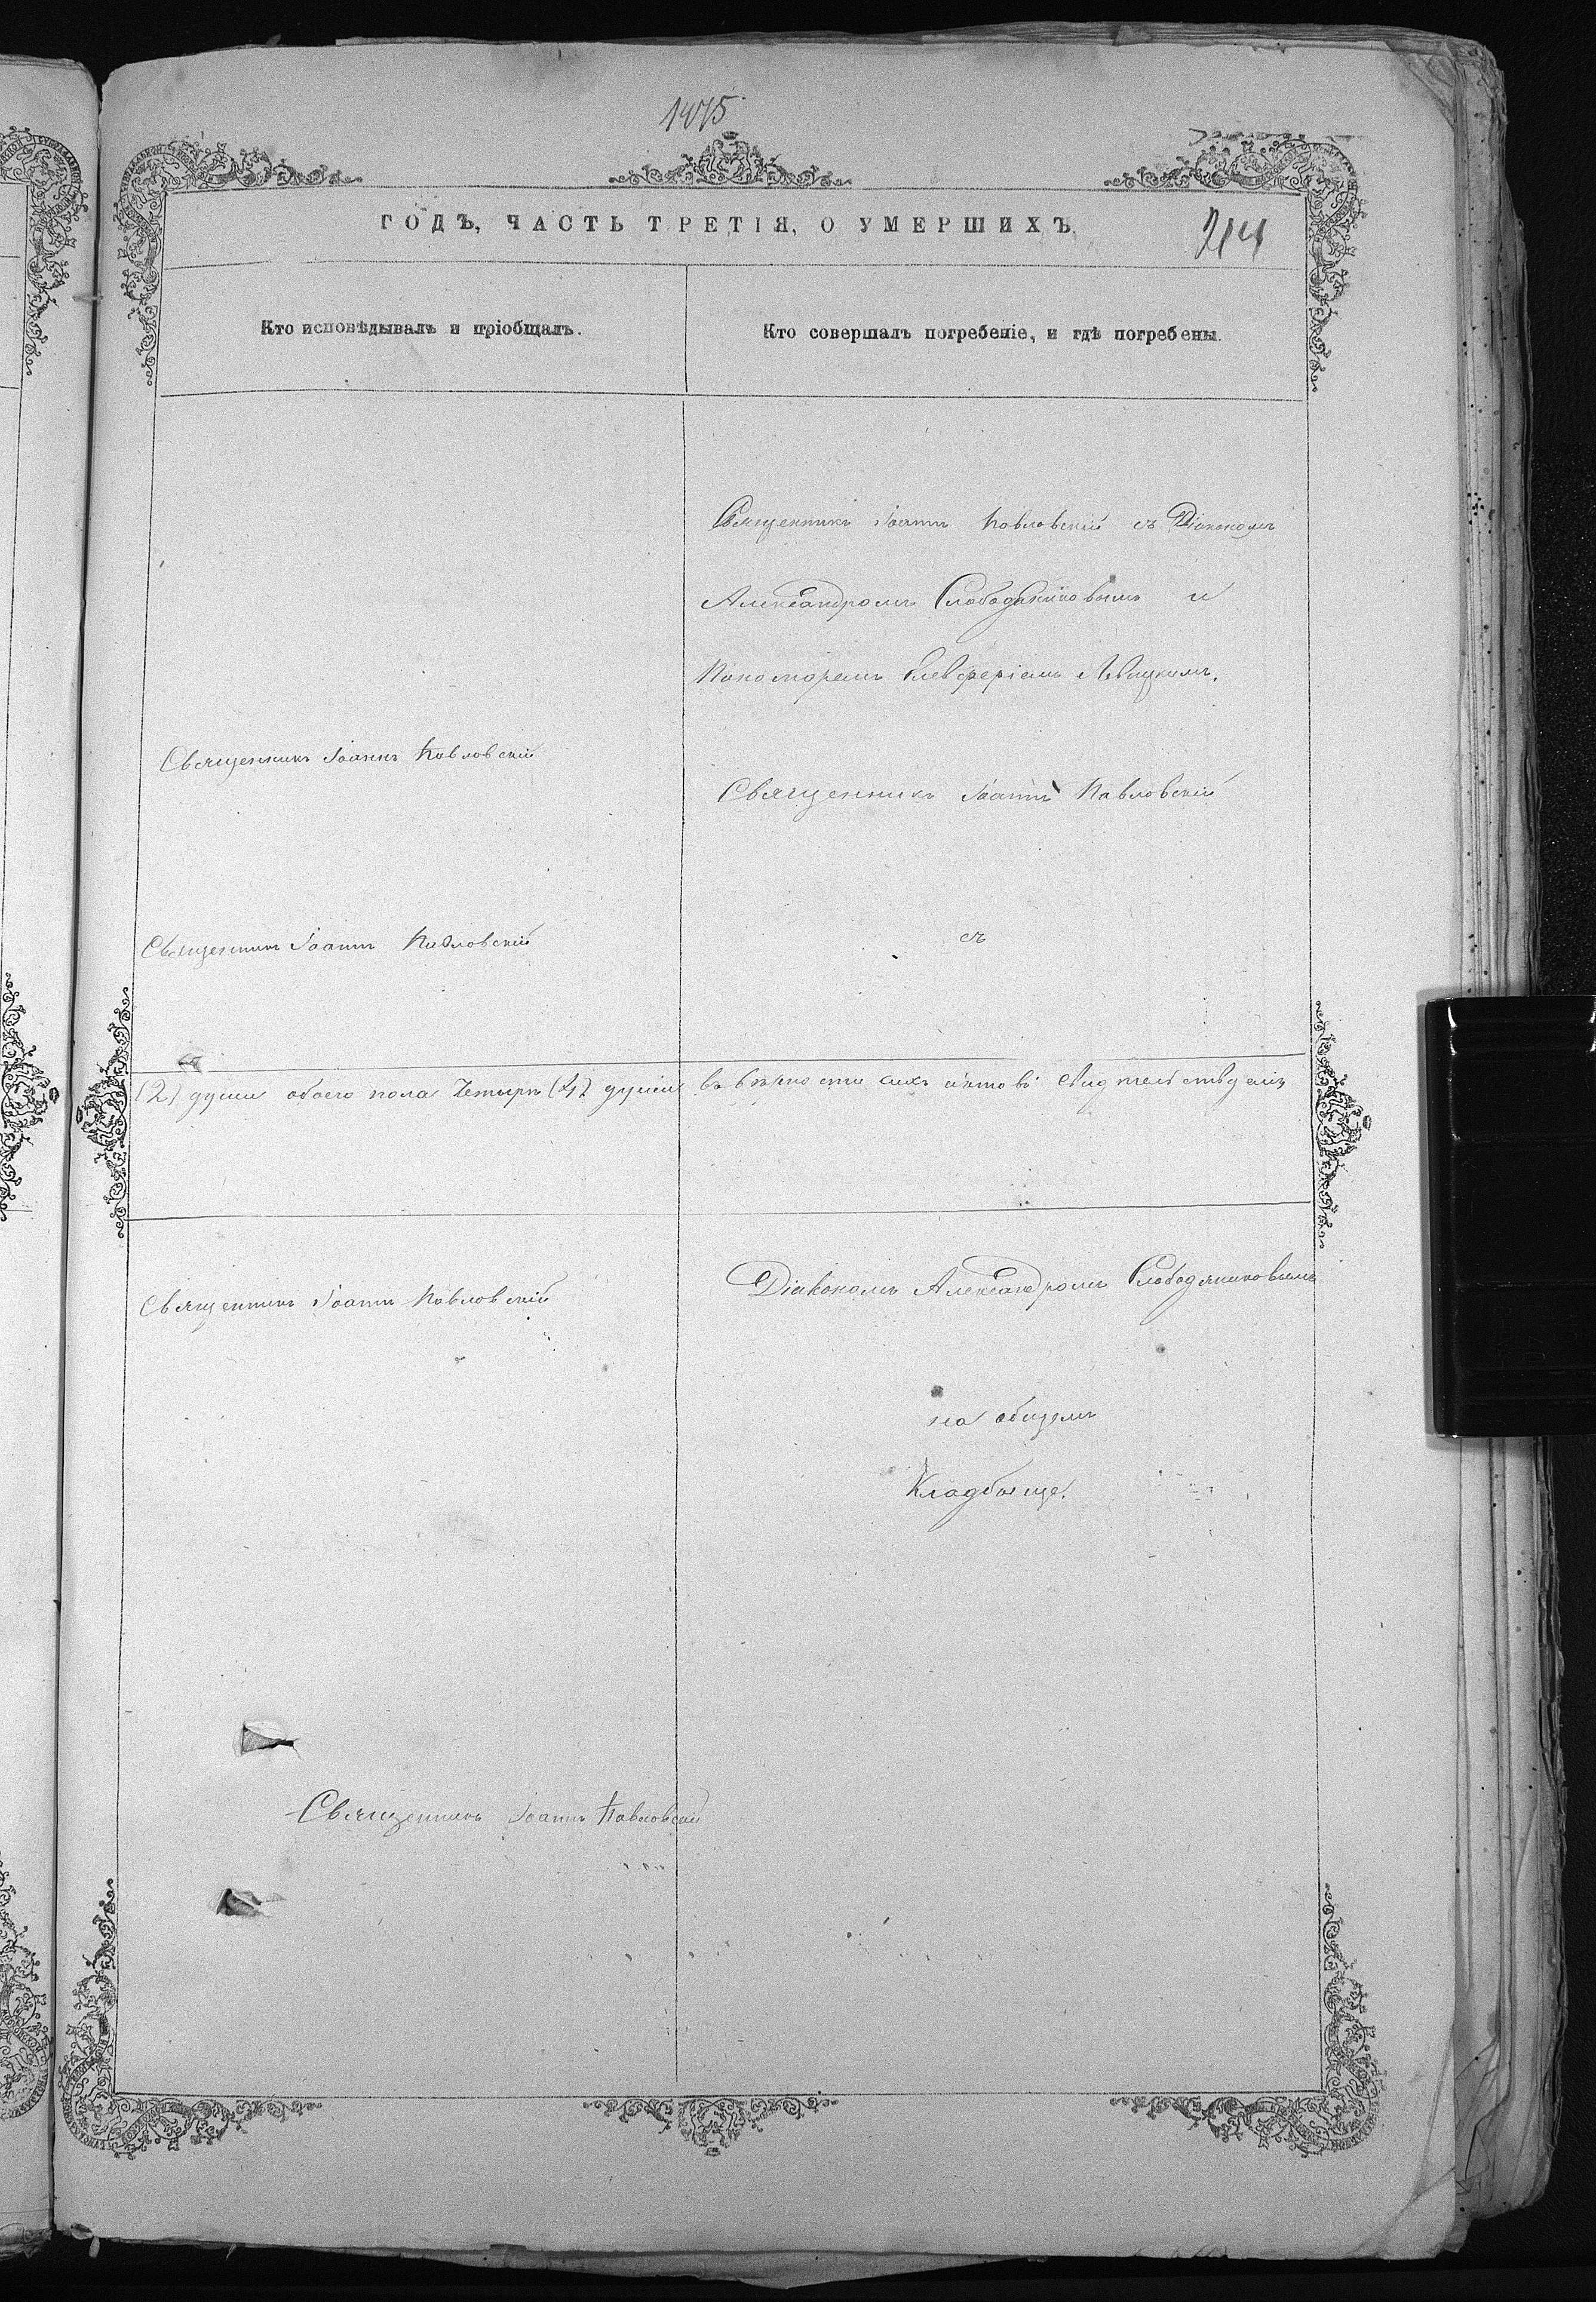 1475
ГОДЪ, ЧАСТЬ ТРЕТІЯ, О УМЕРШИХЪ.
Кто исповѣдывалъ и пріобщалъ.
Кто совершалъ погребеніе, и гдѣ погребены.
Священникъ Іоаннъ Павловскій съ Діакономъ
Александромъ Слободяниковымъ и
Пономоремъ Елевферіемъ Левицкимъ.
Священникъ Іоаннъ Павловскій
Священникъ Іоаннъ Павловскій
Священникъ Іоаннъ Павловскій
съ
(2) души обоего пола Четыри (4) души въ вѣрности сихъ актовъ
Священникъ Іоаннъ Павловскій
Діакономъ Александромъ Слободяниковымъ
на общемъ
Кладбище.
Священникъ Іоаннъ Павловскій